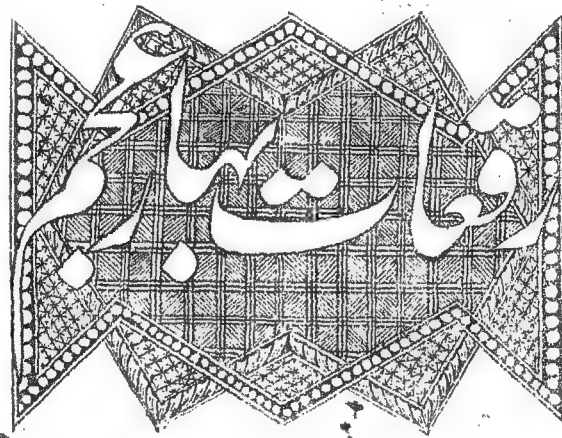 رقعات بہار عجم